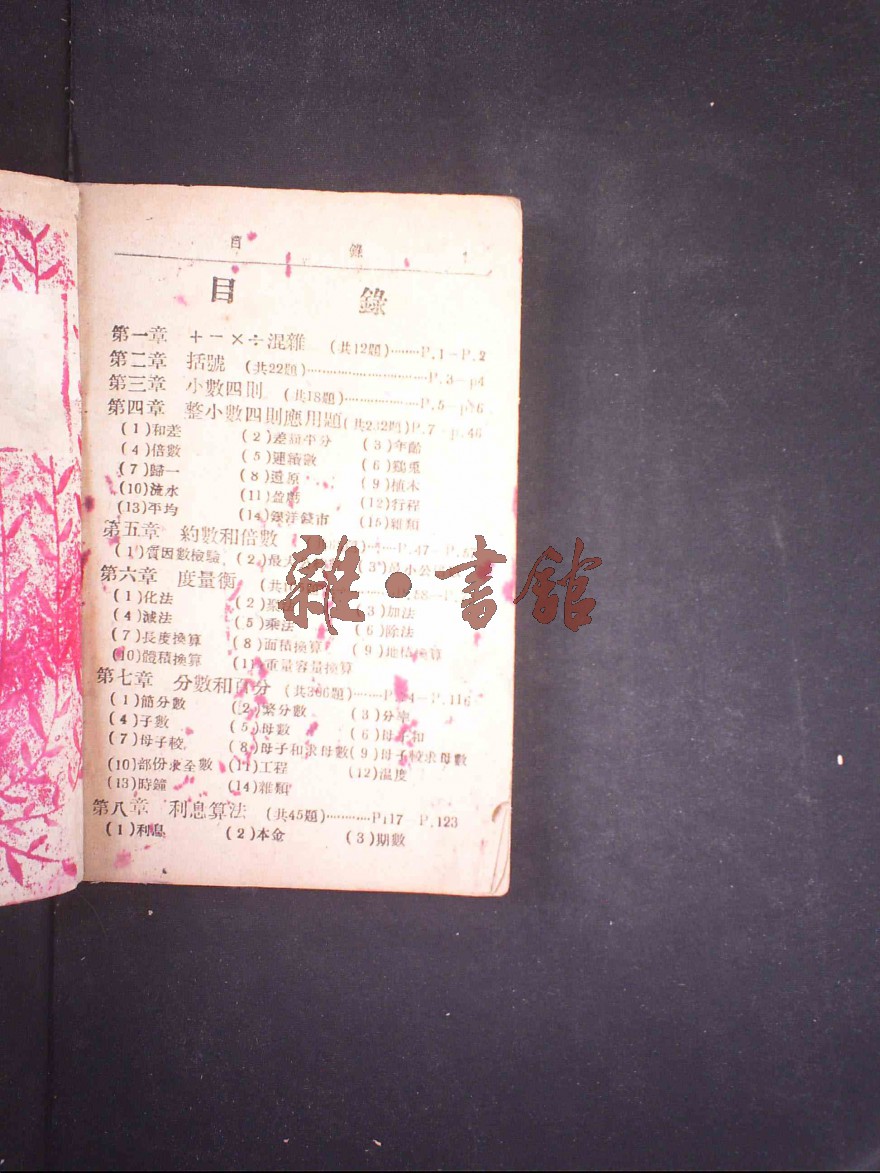 目 錄
目 錄
第一章 ＋－×÷混雜 (共12題)········P.1－P.2
第二章 括號 (共22題)·····························P.3－p4
第三章 小數四則 (共18題)···················P.5－p.6
第四章 整小數四則應用題(共232題)P.7－p.46
(1)和差 (2)差與平分 (3)年齡
(4)倍數 (5)連續數 (6)鷄兎
(7)歸一 (8)還原 (9)植木
(10)流水 (11)盈虧 (12)行程
(13)平均 (14)銀洋錢市 (15)雜類
第五章 約數和倍數 P.47－
(1)質因數檢驗 (2)最大 (3)最小公
第六章 度量衡 (共
(1)化法 (2) (3)加法
(4)減法 (5)乘法 (6)除法
(7)長度換算 (8)面積換算 (9)地積換算
(10)體積換算 (11)重量容量換算
第七章 分數和百分 (共306題)········P. 4－P.116
(1)簡分數 (2)繁分數 (3)分率
(4)子數 (5)母數 (6)母子和
(7)母子較 (8)母子和求母數 (9)母子較求母數
(10)部份求全數 (11)工程 (12)溫度
(13)時鐘 (14)雜類
第八章 利息算法 (共45題)···········P117－P.123
(1)利息 (2)本金 (3)期數
雜·書館